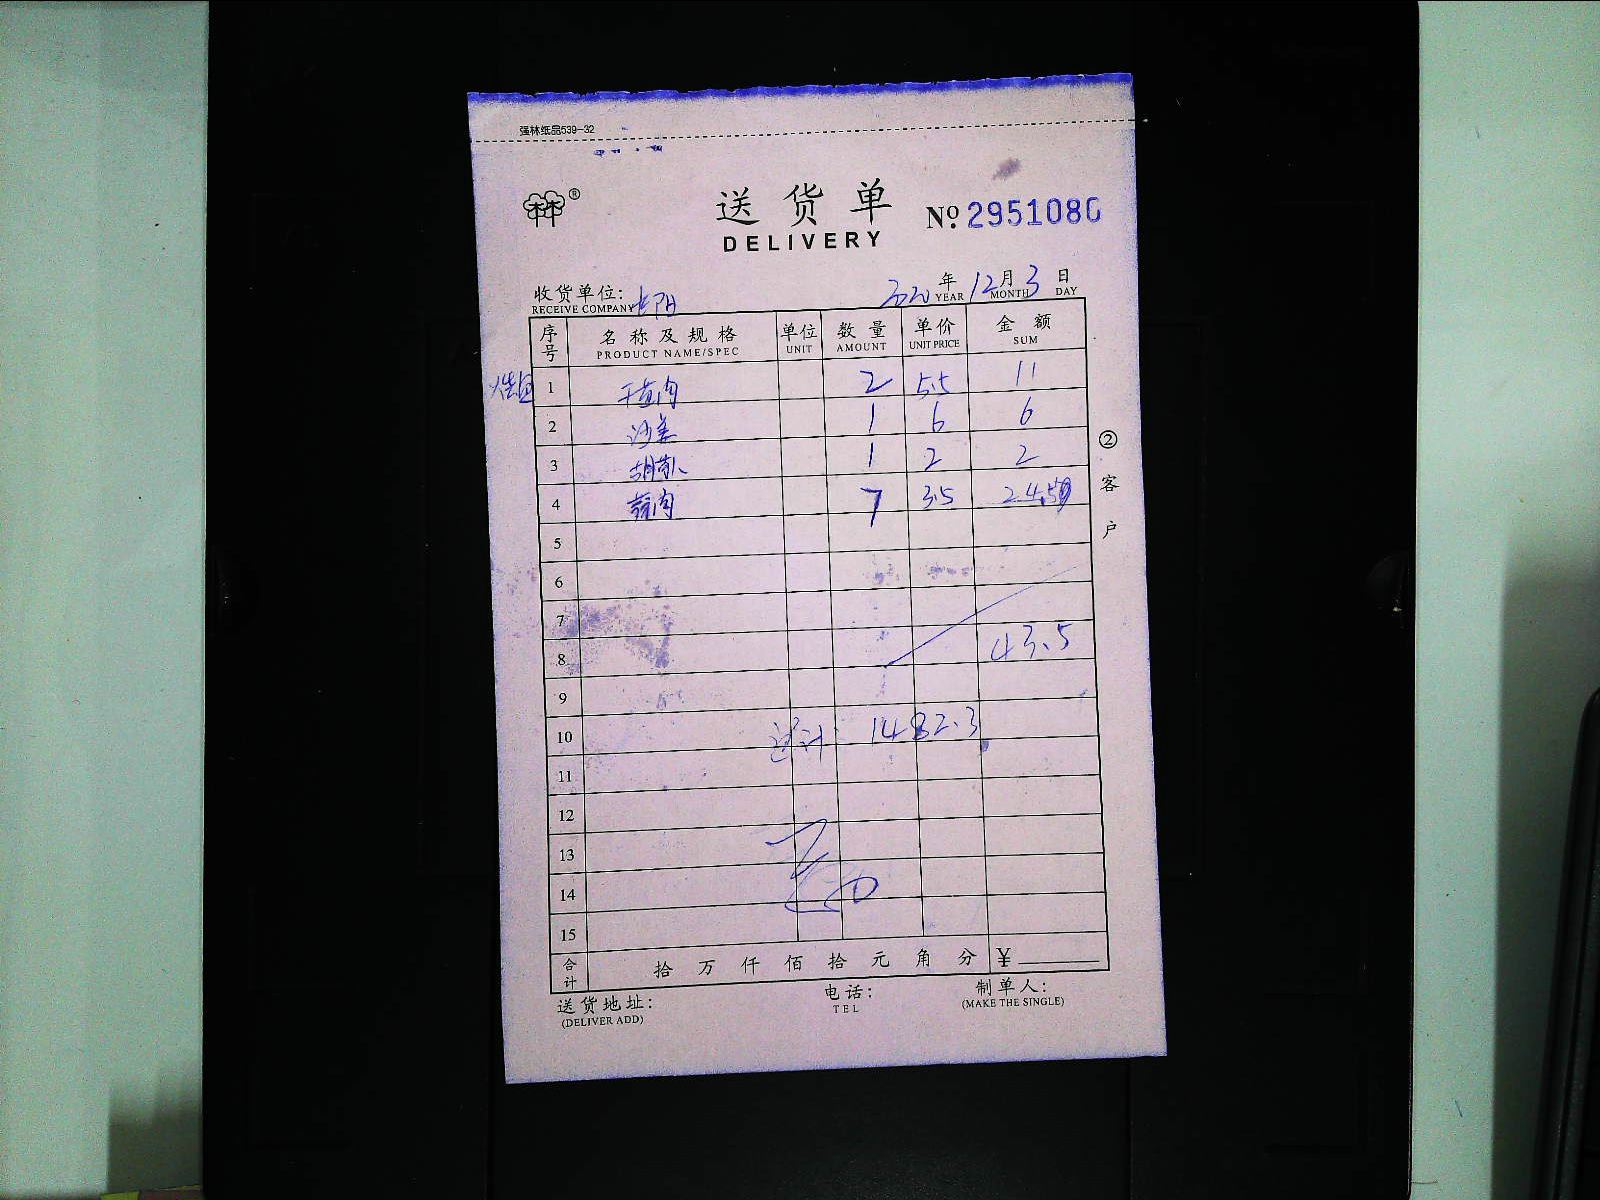 强林纸品539-32
林林®
送货单
DELIVERY
Nº. 2951080
收货单位:
2020年12月3日
RECEIVE COMPANY YEAR MONTH DAY
序号 名称及规格 单位 数量 单价 金额
PRODUCT NAME/SPEC UNIT AMOUNT UNIT PRICE SUM
1 2 5.5 11
2 沙姜 1 6 6
3 1 2 2
4 蒜肉 7 3.5 24.5
5
6
7
8 43.5
9
10 1482.3
11
12
13
14
15
合计 拾万仟佰拾元角分 ¥
②客户
送货地址: 电话: 制单人:
(DELIVER ADD) TEL (MAKE THE SINGLE)